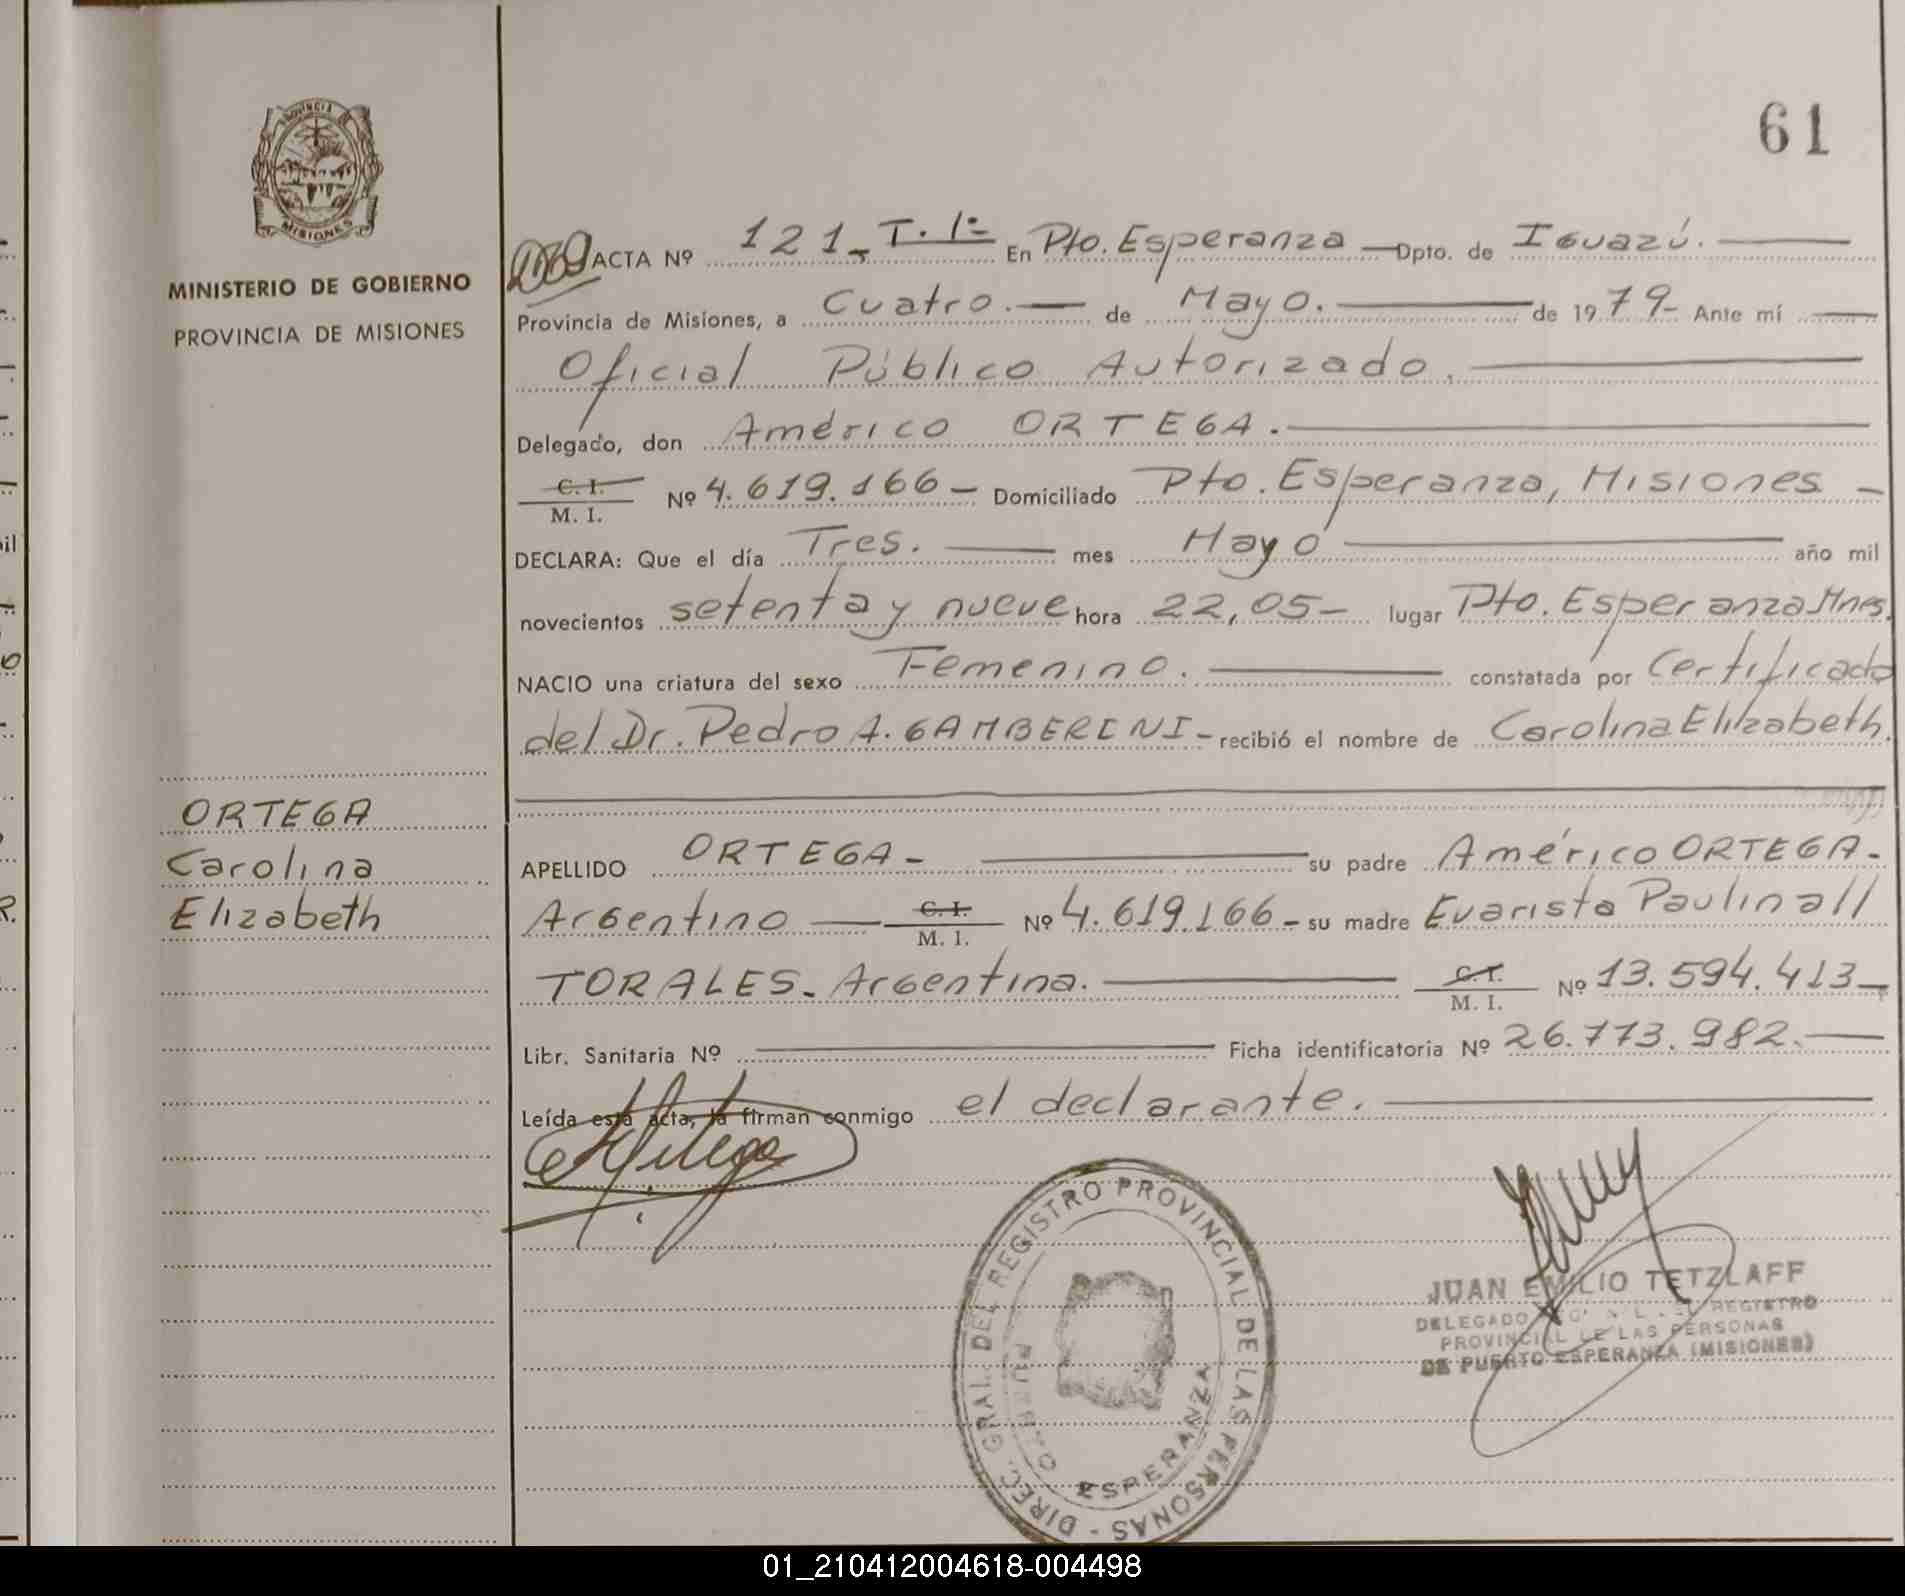 61
PROVINCIA
MISIONES
MINISTERIO DE GOBIERNO
PROVINCIA DE MISIONES
ACTA Nº 121- T. 1º En Pto. Esperanza Dpto. de Iguazú.
Provincia de Misiones, a Cuatro. de Mayo. de 1979- Ante mí
Oficial Público Autorizado.
Delegado, don Américo ORTEGA.
C. I. M. I. Nº 4.619.166- Domiciliado Pto. Esperanza, Misiones -
DECLARA: Que el día Tres. mes Mayo año mil
novecientos setenta y nueve hora 22,05- lugar Pto. Esperanza Mnes.
NACIO una criatura del sexo Femenino. constatada por Certificado
del Dr. Pedro A. GAMBERINI- recibió el nombre de Carolina Elizabeth.
ORTEGA
Carolina
Elizabeth
APELLIDO ORTEGA- su padre Américo ORTEGA-
Argentino C. I. M. I. Nº 4.619.166- su madre Evarista Paulina//
TORALES- Argentina. C. I. M. I. Nº 13.594.413-
Libr. Sanitaria Nº Ficha identificatoria Nº 26.773.982.
Leída esta acta, la firman conmigo el declarante.
DIREC. GRAL. DEL REGISTRO PROVINCIAL DE LAS PERSONAS -
PUERTO ESPERANZA
JUAN EMILIO TETZLAFF
DELEGADO REGISTRO
PROVINCIAL DE LAS PERSONAS
DE PUERTO ESPERANZA (MISIONES)
01_210412004618-004498